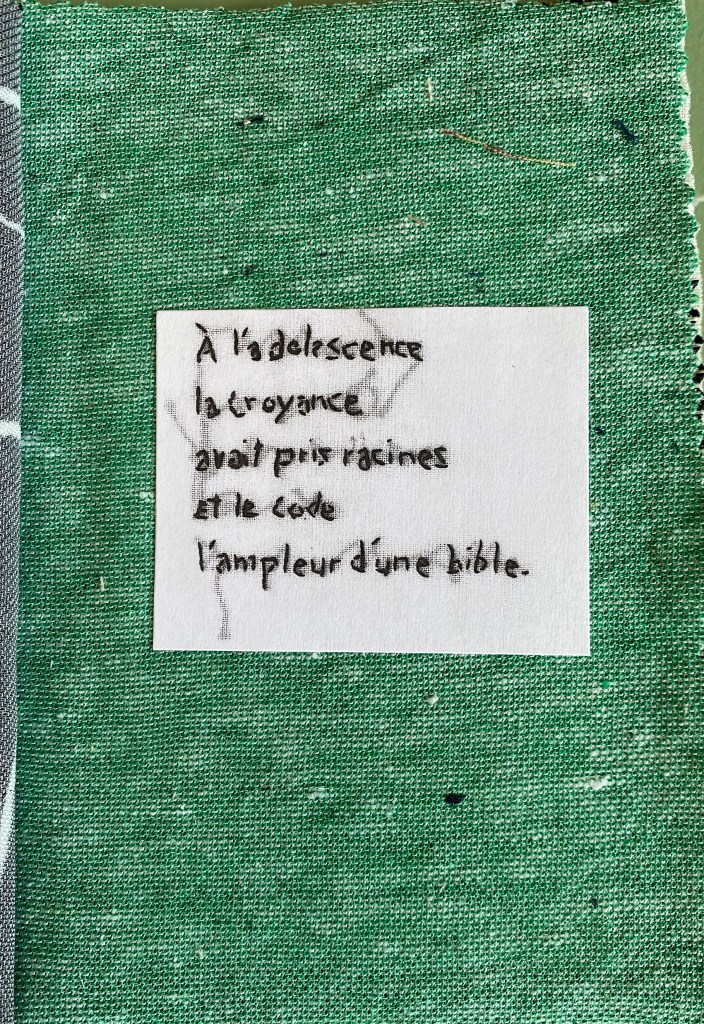 À l'adolescence
la croyance
avait pris racines
et le code
l'ampleur d'une bible.